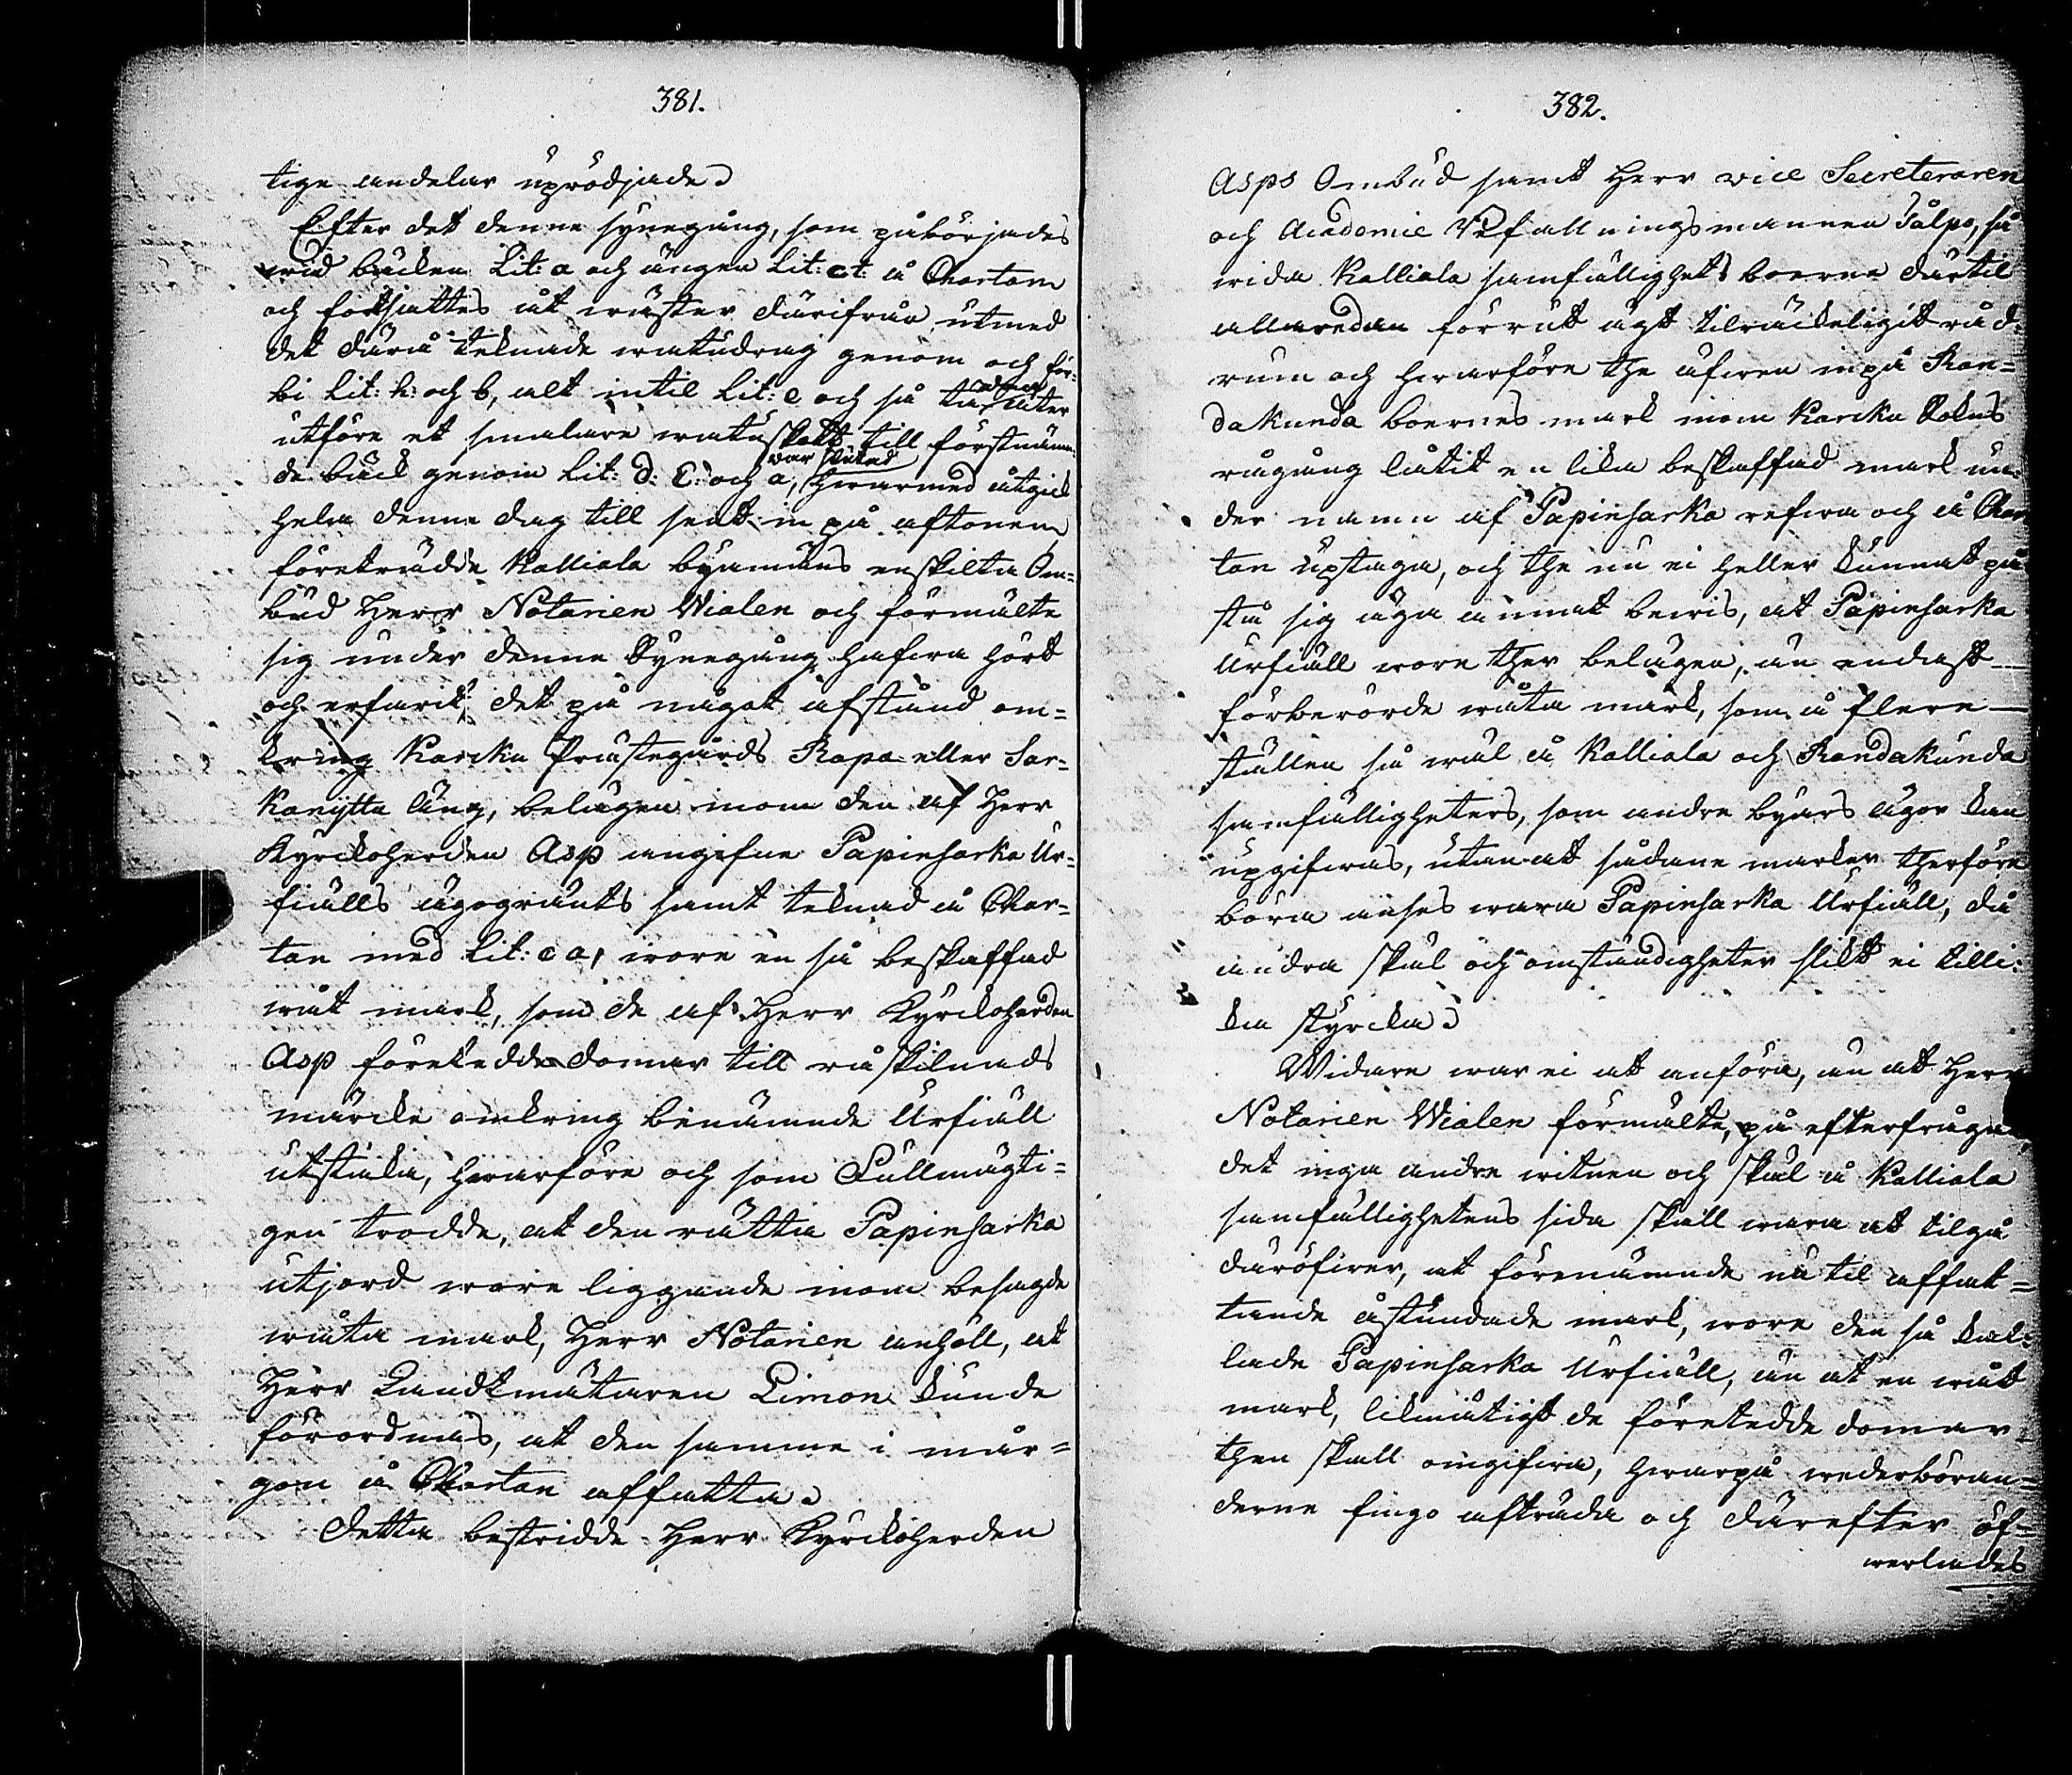 381.
tige andelar uprödjade.
Efter det denne synegång, som påbörjades
wid bäcken Lit: a och ängen Lit: ct: å Chartan
och fortsattes åt wäster därifrån utmed
det därå teknade watudrag genom och för-
bi Lit: h: och b, alt intil Lit: e och så
utföre et smalare watu till förstnämn-
de bäck genom Lit: d: C: och a, war slutad hwarmed åtgick
hela denne dag till sent in på aftonen,
företrädde Kalliala byamäns enskilta Om-
bud Herr Notarien Wialen och förmälte
sig under denne Synegång hafwa hört
och erfarit, det på något afstånd om-
kring Karcku Prästegårds Rapa eller Sar-
kanytta äng, belägen inom den af Herr
Kyrckoherden Asp angifne Papinsarka Ur-
fiälls ägogränts samt teknad å Char-
tan med Lit: c a, wore en så beskaffad
wåt mark, som de af Herr Kyrckoherden
Asp företedde domar till råskilnads
märcke omkring benämnde Urfiäll
utstaka, hwarföre och som Fullmägti-
gen trodde, at den rätta Papinsarka
utjord wore liggande inom besagde
wåta mark, Herr Notarien anhöll, at
Herr Landtmätaren Limon kunde
förordnas, at den samme i mår-
gon å Chartan affatta.
Detta bestridde Herr Kyrckoherden
382.
Asps Ombud samt Herr vice Secreteraren
och Academie Befallningsmannen Tålpo, så
wida Kalliala samfällighets boerne därtil
allaredan förrut ägt tilräckeligit råd-
rum och hwarföre the äfwen inpå Ran-
dakunda boernes mark inom Karcku Bokns
rågång låtit en lika beskaffad mark un-
der namn af Papinsarka refwa och å Char
tan uptaga, och the nu ei heller kunnat på
stå sig äga annat bewis, at Papinsarka
Urfiäll wore ther belägen, än endast
förberörde wåta mark, som å flere
ställen så wäl å Kalliala och Randakunda
samfälligheters, som andre byars ägor kan
upgifwas, utan at sådane marker therföre
böra anses wara Papinsarka Urfiäll, då
andra skäl och omständigheter slikt ei tilli-
ka styrcka.
Widare war ei at anföra, än att Herr
Notarien Wialen förmälte, på efterfrågan,
det inga andre witnen och skäl å Kalliala
samfällighetens sida skall wara at tilgå
däröfwer, at förenämnde nu til affat-
tande åstundade mark, wore den så kal-
lade Papinsarka Urfiäll, än at en wåt
mark, likmätigt de företedde domar,
then skall omgifwa, hwarpå wederböran-
derne fingo afträda och därefter öf-
werlades